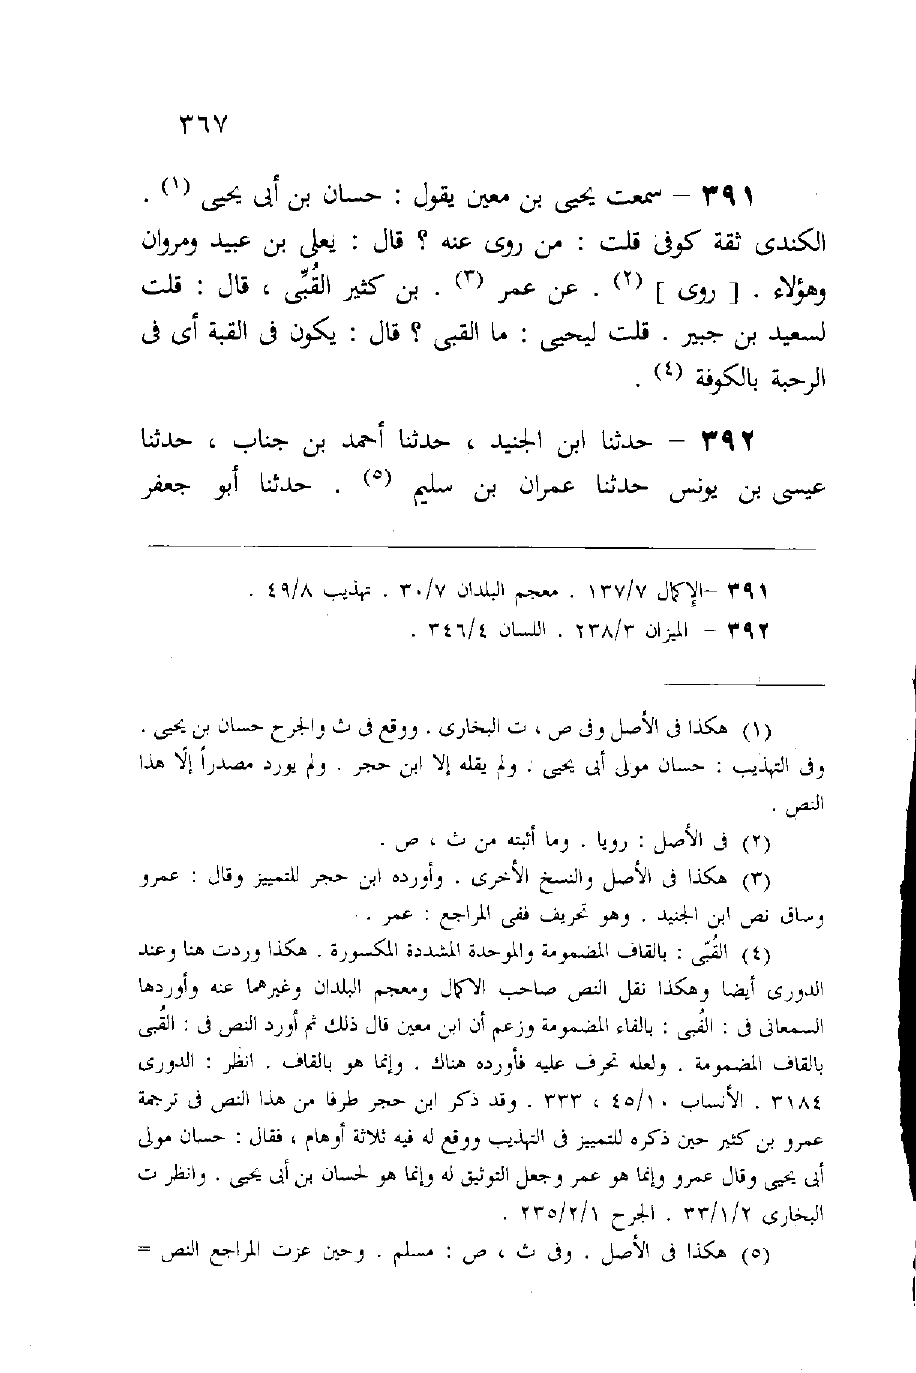 ٣٦٧
٣٩١ – سمعت يحيى بن معين يقول : حسان بن أبى يحيى (١) .
الكندى ثقة كوفى قلت : من روى عنه ؟ قال : يعلى بن عبيد ومروان
وهؤلاء . [ روى ] (٢) . عن عمر (٣) . بن كثير القُبِّى ، قال : قلت
لسعيد بن جبير . قلت ليحيى : ما القبى ؟ قال : يكون فى القبة أى فى
الرحبة بالكوفة (٤) .
٣٩٢ – حدثنا ابن الجنيد ، حدثنا أحمد بن جناب ، حدثنا
عيسى بن يونس حدثنا عمران بن سليم (٥) . حدثنا أبو جعفر
٣٩١ –الإكمال ١٣٧/٧ . معجم البلدان ٣٠/٧ . تهذيب ٤٩/٨ .
٣٩٢ – الميزان ٢٣٨/٣ . اللسان ٣٤٦/٤ .
(١) هكذا فى الأصل وفى ص ، ت البخارى . ووقع فى ث والجرح حسان بن يحيى .
وفى التهذيب : حسان مولى أبى يحيى . ولم يقله إلا ابن حجر . ولم يورد مصدراً إلّا هذا
النص .
(٢) فى الأصل : رويا . وما أثبته من ث ، ص .
(٣) هكذا فى الأصل والنسخ الأخرى . وأورده ابن حجر للتمييز وقال : عمرو
وساق نص ابن الجنيد . وهو تحريف ففى المراجع : عمر .
(٤) القُبّى : بالقاف المضمومة والموحدة المشددة المكسورة . هكذا وردت هنا وعند
الدورى أيضا وهكذا نقل النص صاحب الاكمال ومعجم البلدان وغيرهما عنه وأوردها
السمعانى فى : الفُبى : بالفاء المضمومة وزعم أن ابن معين قال ذلك ثم أورد النص فى : القُبى
بالقاف المضمومة . ولعله تحرف عليه فأورده هناك . وإنما هو بالقاف . انظر : الدورى
٣١٨٤ . الأنساب ٤٥/١٠ ، ٣٣٣ . وقد ذكر ابن حجر طرفا من هذا النص فى ترجمة
عمرو بن كثير حين ذكره للتمييز فى التهذيب ووقع له فيه ثلاثة أوهام ، فقال : حسان مولى
أبى يحيى وقال عمرو وإنما هو عمر وجعل التوثيق له وإنما هو لحسان بن أبى يحيى . وانظر ت
البخارى ٣٣/١/٢ . الجرح ٢٣٥/٢/١ .
(٥) هكذا فى الأصل . وفى ث ، ص : مسلم . وحين عزت المراجع النص =